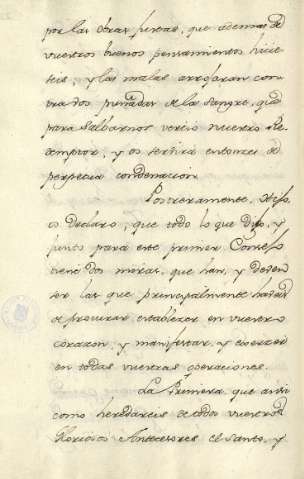 por las obras justas, que ademas de
vuestros buenos pensamientos hicie
reis, y las malas arrojaran con
tra dos puñadas de la sangre, que
para salbarnos vertio nuestro Re
demptor, y os servira entonces de
perpetua condenacion.
Postreramente, Hijo,
os Declaro, que todo lo que Dijo, y
junto para este primer Consejo
tiene dos miras, que han, y deven
ser las que principalmente haveis
de procurar establezer en vuestro
corazon, y manifestar, y exercer
en todas vuestras operaciones.
La Primera, que assi
como heredareis de todos vuestros
Gloriosos Antecesores el Santo, y